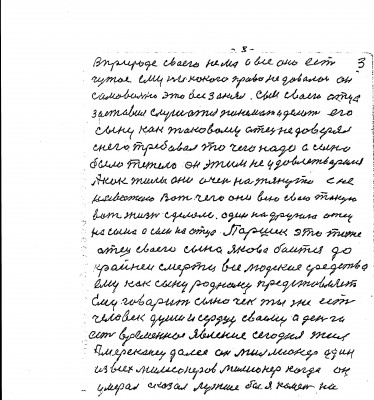 - 3 -
3
в природе своего нема а все оно есть
чужое ему никакого права не довалось он
самовольно это все занял. Сын своего отца
заставил слушатся понимать делить его
сыну как таковому отец не доверял
снего требовал то чего надо а сыно
было тяжело он этим не удовлетворился
Авот жили они очен натянуто с не
навистию Вот чего они всю свою такую
вот жизнь сделали. один на другого отец
на сына а сын на отца Паршек это тоже
отец своего сына Якова боится до
крайней смерти все людские средства
ему как сыну родному представляет
Ему говорит сыночек ты же есть
человек души и сердцу своему а деньги
есть временное явление сегодня жил
Американец далее он миллионер один
из всех миллионеров миллионер когда он
умерал сказал лутше бы я комет на